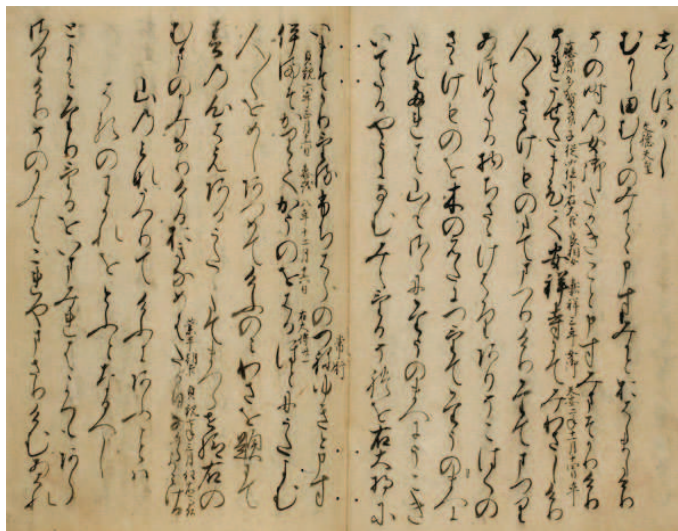 文徳天皇
むかし田むらのみかとゝ申すみかとおはしましけり
その時の女御たかきこと申すみまそかりけり
藤原多賀幾子 従四位下 右大臣良相女 嘉祥三年女御 天安二年十一月十四日卒
それうせたまひて安祥寺にてみわさしけり
人〻さゝけものたてまつりけりたてまつり
あつめたる物ちさゝけはかりありそこはくの
さゝけものを木のえたにつけてたうのまへに
たてたれは山もさらにたうのまへにうこき
いてたるやうになむみえけるそれを右大将に
常行
いまそかりけるふちはらのつねゆきと申す
いまそかりてかうのをはるほとにうたよむ
人〻をめしあつめてけふのみわさを題にて
春の心はえあるうたたてまつらせ給右の
むまのかみなりけるおきなめはたかひなからよみける
山のみなうつりてけふにあふことは
はるのわかれをとふとなるへし
とよみたりけるをいまみれはよくもあら
さりけりそのかみはこれやまさりけむあはれ